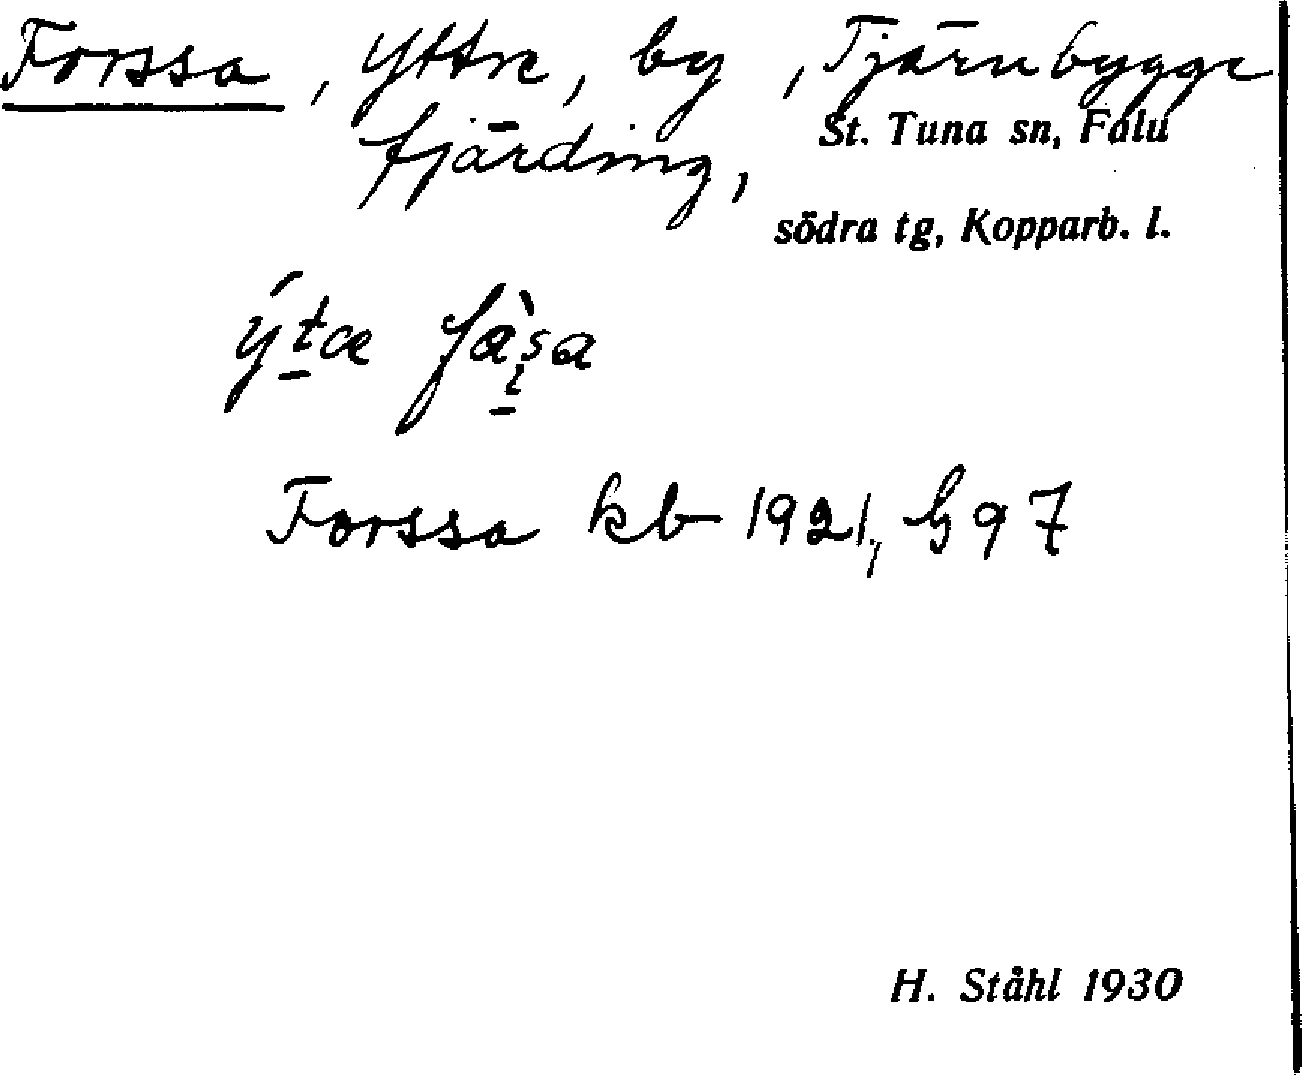 Forssa, Yttre, by, Tjärnbygge
fjärding, St. Tuna sn, Falu
södra tg, Kopparb. l.
Forssa kb 1921, G 97
H. Ståhl 1930